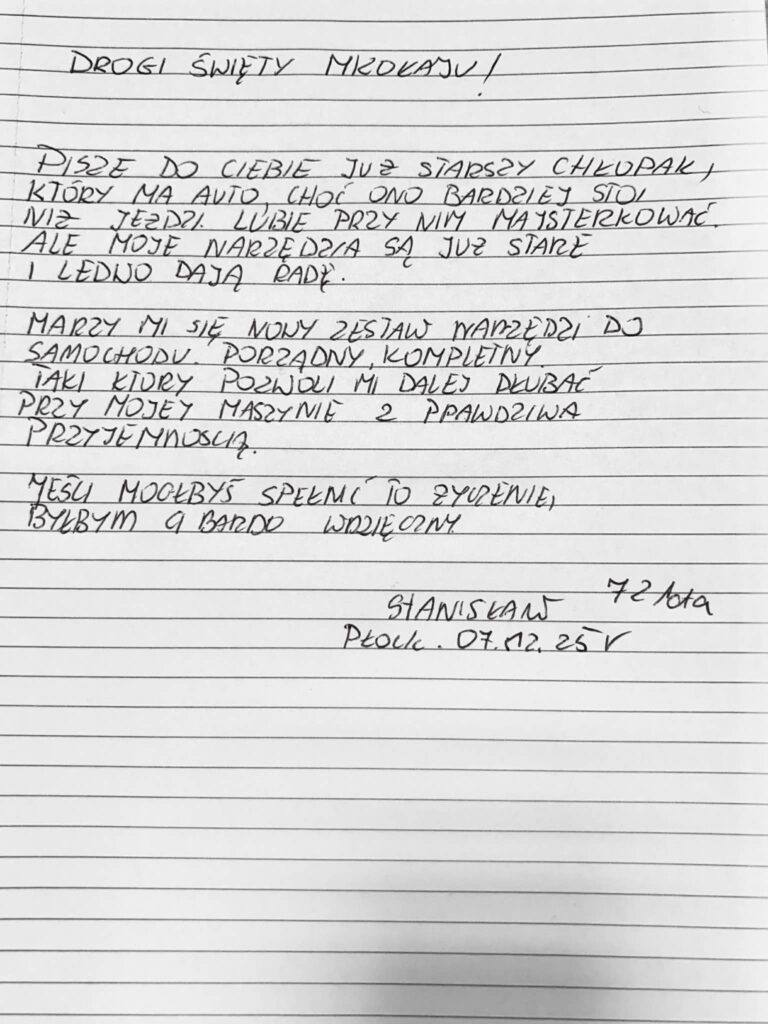 DROGI ŚWIĘTY MIKOŁAJU!
PISZE DO CIEBIE JUŻ STARSZY CHŁOPAK,
KTÓRY MA AUTO, CHOĆ ONO BARDZIEJ STOI
NIŻ JEŹDZI. LUBIE PRZY NIM MAJSTERKOWAĆ.
ALE MOJE NARZĘDZIA SĄ JUŻ STARE
I LEDWO DAJĄ RADĘ.
MARZY MI SIĘ NOWY ZESTAW NARZĘDZI DO
SAMOCHODU. PORZĄDNY, KOMPLETNY.
TAKI KTORY POZWOLI MI DALEJ DŁUBAĆ
PRZY MOJEJ MASZYNIE Z PRAWDZIWA
PRZYJEMNOSCIĄ.
JEŚLI MOGŁBYŚ SPEŁNIĆ TO ŻYCZENIE,
BYŁBYM CI BARDO WDZIĘCZNY
STANISŁAW 72 lata
Płock. 07.12.25 r